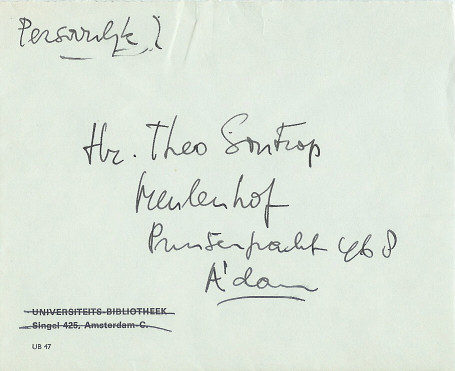 Persoonlijk!
Hr. Theo Sontrop
Meulenhof
Prinsengracht 468
A'dam
UNIVERSITEITS-BIBLIOTHEEK
Singel 425, Amsterdam-C.
UB 47